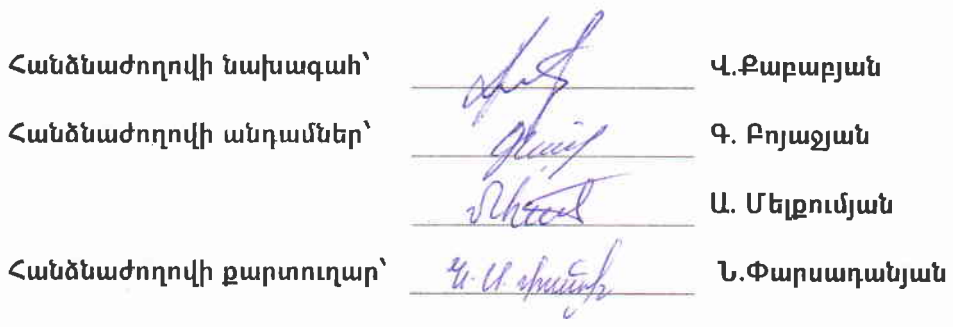 Հանձնաժողովի նախագահ՝ Վ.Քաբաբյան
Հանձնաժողովի անդամներ՝ Գ. Բոյաջյան
Ա. Մելքումյան
Հանձնաժողովի քարտուղար՝ Ն.Փարսադանյան